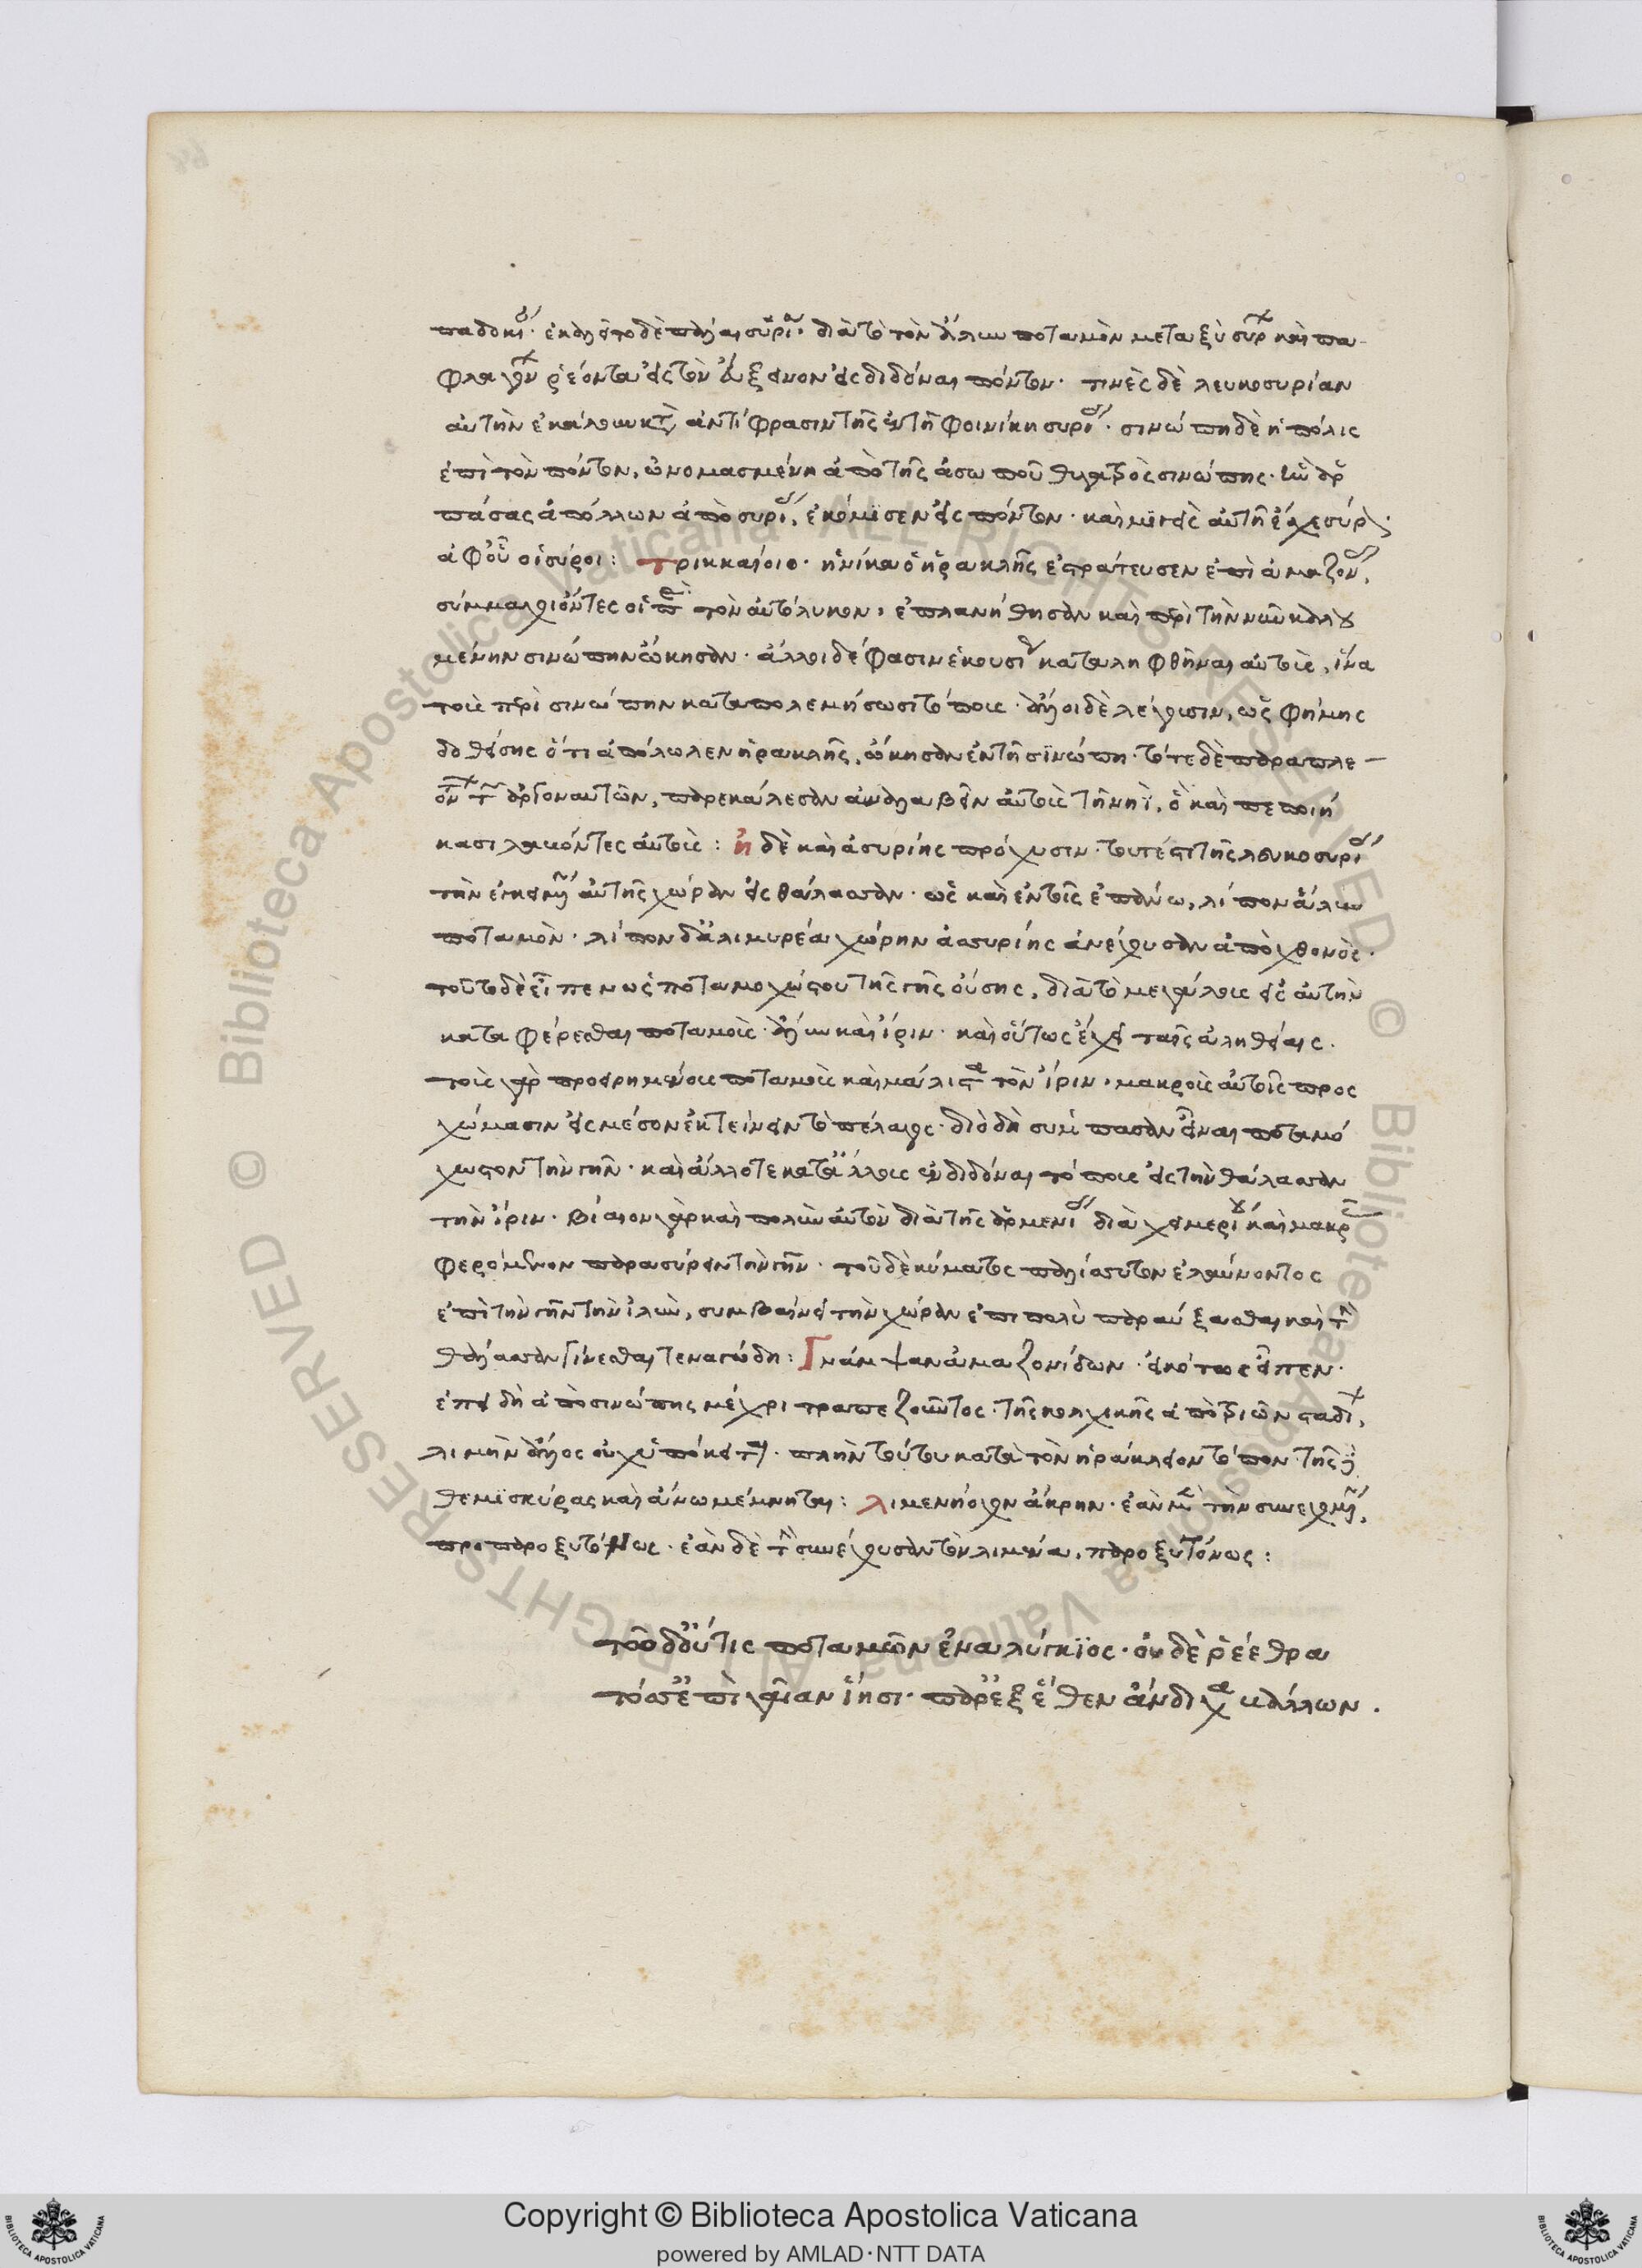 παδοκίας· ἐκαλεῖτο δὲ πάλαι συρία· διὰ τὸ τὸν ἅλυν ποταμὸν μεταξὺ συρ καὶ πα-
φλαγόνων ῥέοντα εἰς τὸν εὔξεινον ἐκδιδόναι πόντον· τινὲς δὲ λευκοσυρίαν
αὐτὴν ἐκάλουν κατὰ ἀντίφρασιν τῆς ἐν τῇ φοινίκῃ συρίας· σινώπη δὲ ἡ πόλις
ἐπὶ τὸν πόντον, ὠνομασμένη ἀπὸ τῆς ἀσωποῦ θυγατρὸς σινώπης· ἣν ἁρ
πάσας ἀπόλλων ἀπὸ συρίας, ἐκόμισεν εἰς πόντον· καὶ μιγεὶς αὐτῇ ἔσχε σύρον·
ἀφ' οὗ οἱ σύροι: τρικκαίοιο· ἡνίκα ὁ ἡρακλῆς ἐστράτευσεν ἐπὶ ἀμαζόνας,
συμμαχοῦντες οἱ περὶ τὸν αὐτόλυκον, ἐπλανήθησαν καὶ περὶ τὴν νῦν καλου
μένην σινώπην ὤκησαν· ἄλλοι δέ φασιν ἑκουσίως καταλειφθῆναι αὐτοὺς, ἵνα
τοὺς περὶ σινώπην καταπολεμήσωσι τόπους· ἄλλοι δὲ λέγουσιν, ὡς φήμης
δοθείσης ὅτι ἀπόλωλεν ἡρακλῆς, ὤκησαν ἐν τῇ σινώπῃ· τότε δὲ παραπλε-
όντων τῶν ἀργοναυτῶν, παρεκάλεσαν ἀναλαβεῖν αὐτοὺς τῇ νηῒ, ὃ καὶ πεποιή
κασι λαβόντες αὐτοὺς: ἠ δὲ καὶ ἀσυρίης πρόχυσιν· τουτέστι τῆς λευκοσυρίας
τὴν ἐκκειμένην αὐτῆς χώραν εἰς θάλασσαν· ὡς καὶ ἐν τοῖς ἐπάνω, λίπον ἅλυν
ποταμὸν· λίπον δ' ἁλιμυρέα χώρην ἀσσυρίης ἀνέχουσαν ἀπὸ χθονὸς·
τοῦτο δὲ εἶπεν ὡς ποταμοχώστου τῆς γῆς οὔσης, διὰ τὸ μεγάλους εἰς αὐτὴν
καταφέρεσθαι ποταμοὺς· ἅλυν καὶ ἴριν· καὶ οὕτως ἔχει ταῖς ἀληθείαις·
τοὺς γὰρ προειρημένους ποταμοὺς καὶ μάλιστα τὸν ἴριν, μακροὺς αὐτοῖς προσ
χώμασιν εἰς μέσον ἐκτείνειν τὸ πέλαγος· διὸ δὴ σύμπασαν εἶναι ποταμό
χωστον τὴν γῆν· καὶ ἄλλοτε κατ' ἄλλους ἐκδιδόναι τόπους εἰς τὴν θάλασσαν
τὴν ἴριν· βίαιον γὰρ καὶ πολὺν αὐτὸν διὰ τῆς ἀρμενίας διὰ χειμερίου καὶ μακρᾶς
φερόμενον παρασύρειν τὴν γῆν· τοῦ δὲ κύματος πλησίον τούτων ἐλαύνοντος
ἐπὶ τὴν γῆν τὴν ἰλὺν, συμβαίνει τὴν χώραν ἐπιπολὺ παραύξεσθαι καὶ τὴν
θάλασσαν γίνεσθαι τεναγώδη: Γνάμψαν ἀμαζονίδων· εἰκότως εἶπεν·
ἐπειδὴ ἀπὸ σινώπης μέχρι τραπεζοῦντος· τῆς κολχικῆς ἀπὸ τριῶν σταδίων,
λιμὴν ἄλλος οὐχ ὑπόκειται· πλὴν τούτου κατὰ τὸν ἡράκλειον τόπον· τῆς δὲ
θεμισκύρας καὶ ἄνω μέμνηται: λιμενήοχον ἄκρην· ἐὰν μὲν τὴν συνεχομένην,
προπαροξυτόνως· ἐὰν δὲ τὴν συνέχουσαν τὸν λιμένα, παροξυτόνως:
τῷ δ' οὔτις ποταμῶν ἐναλίγκιος· οὐδὲ ῥέεθρα
τόσσ' ἐπὶ γαῖαν ἵησι· παρὲξ ἕθεν ἄνδιχα βάλλων.